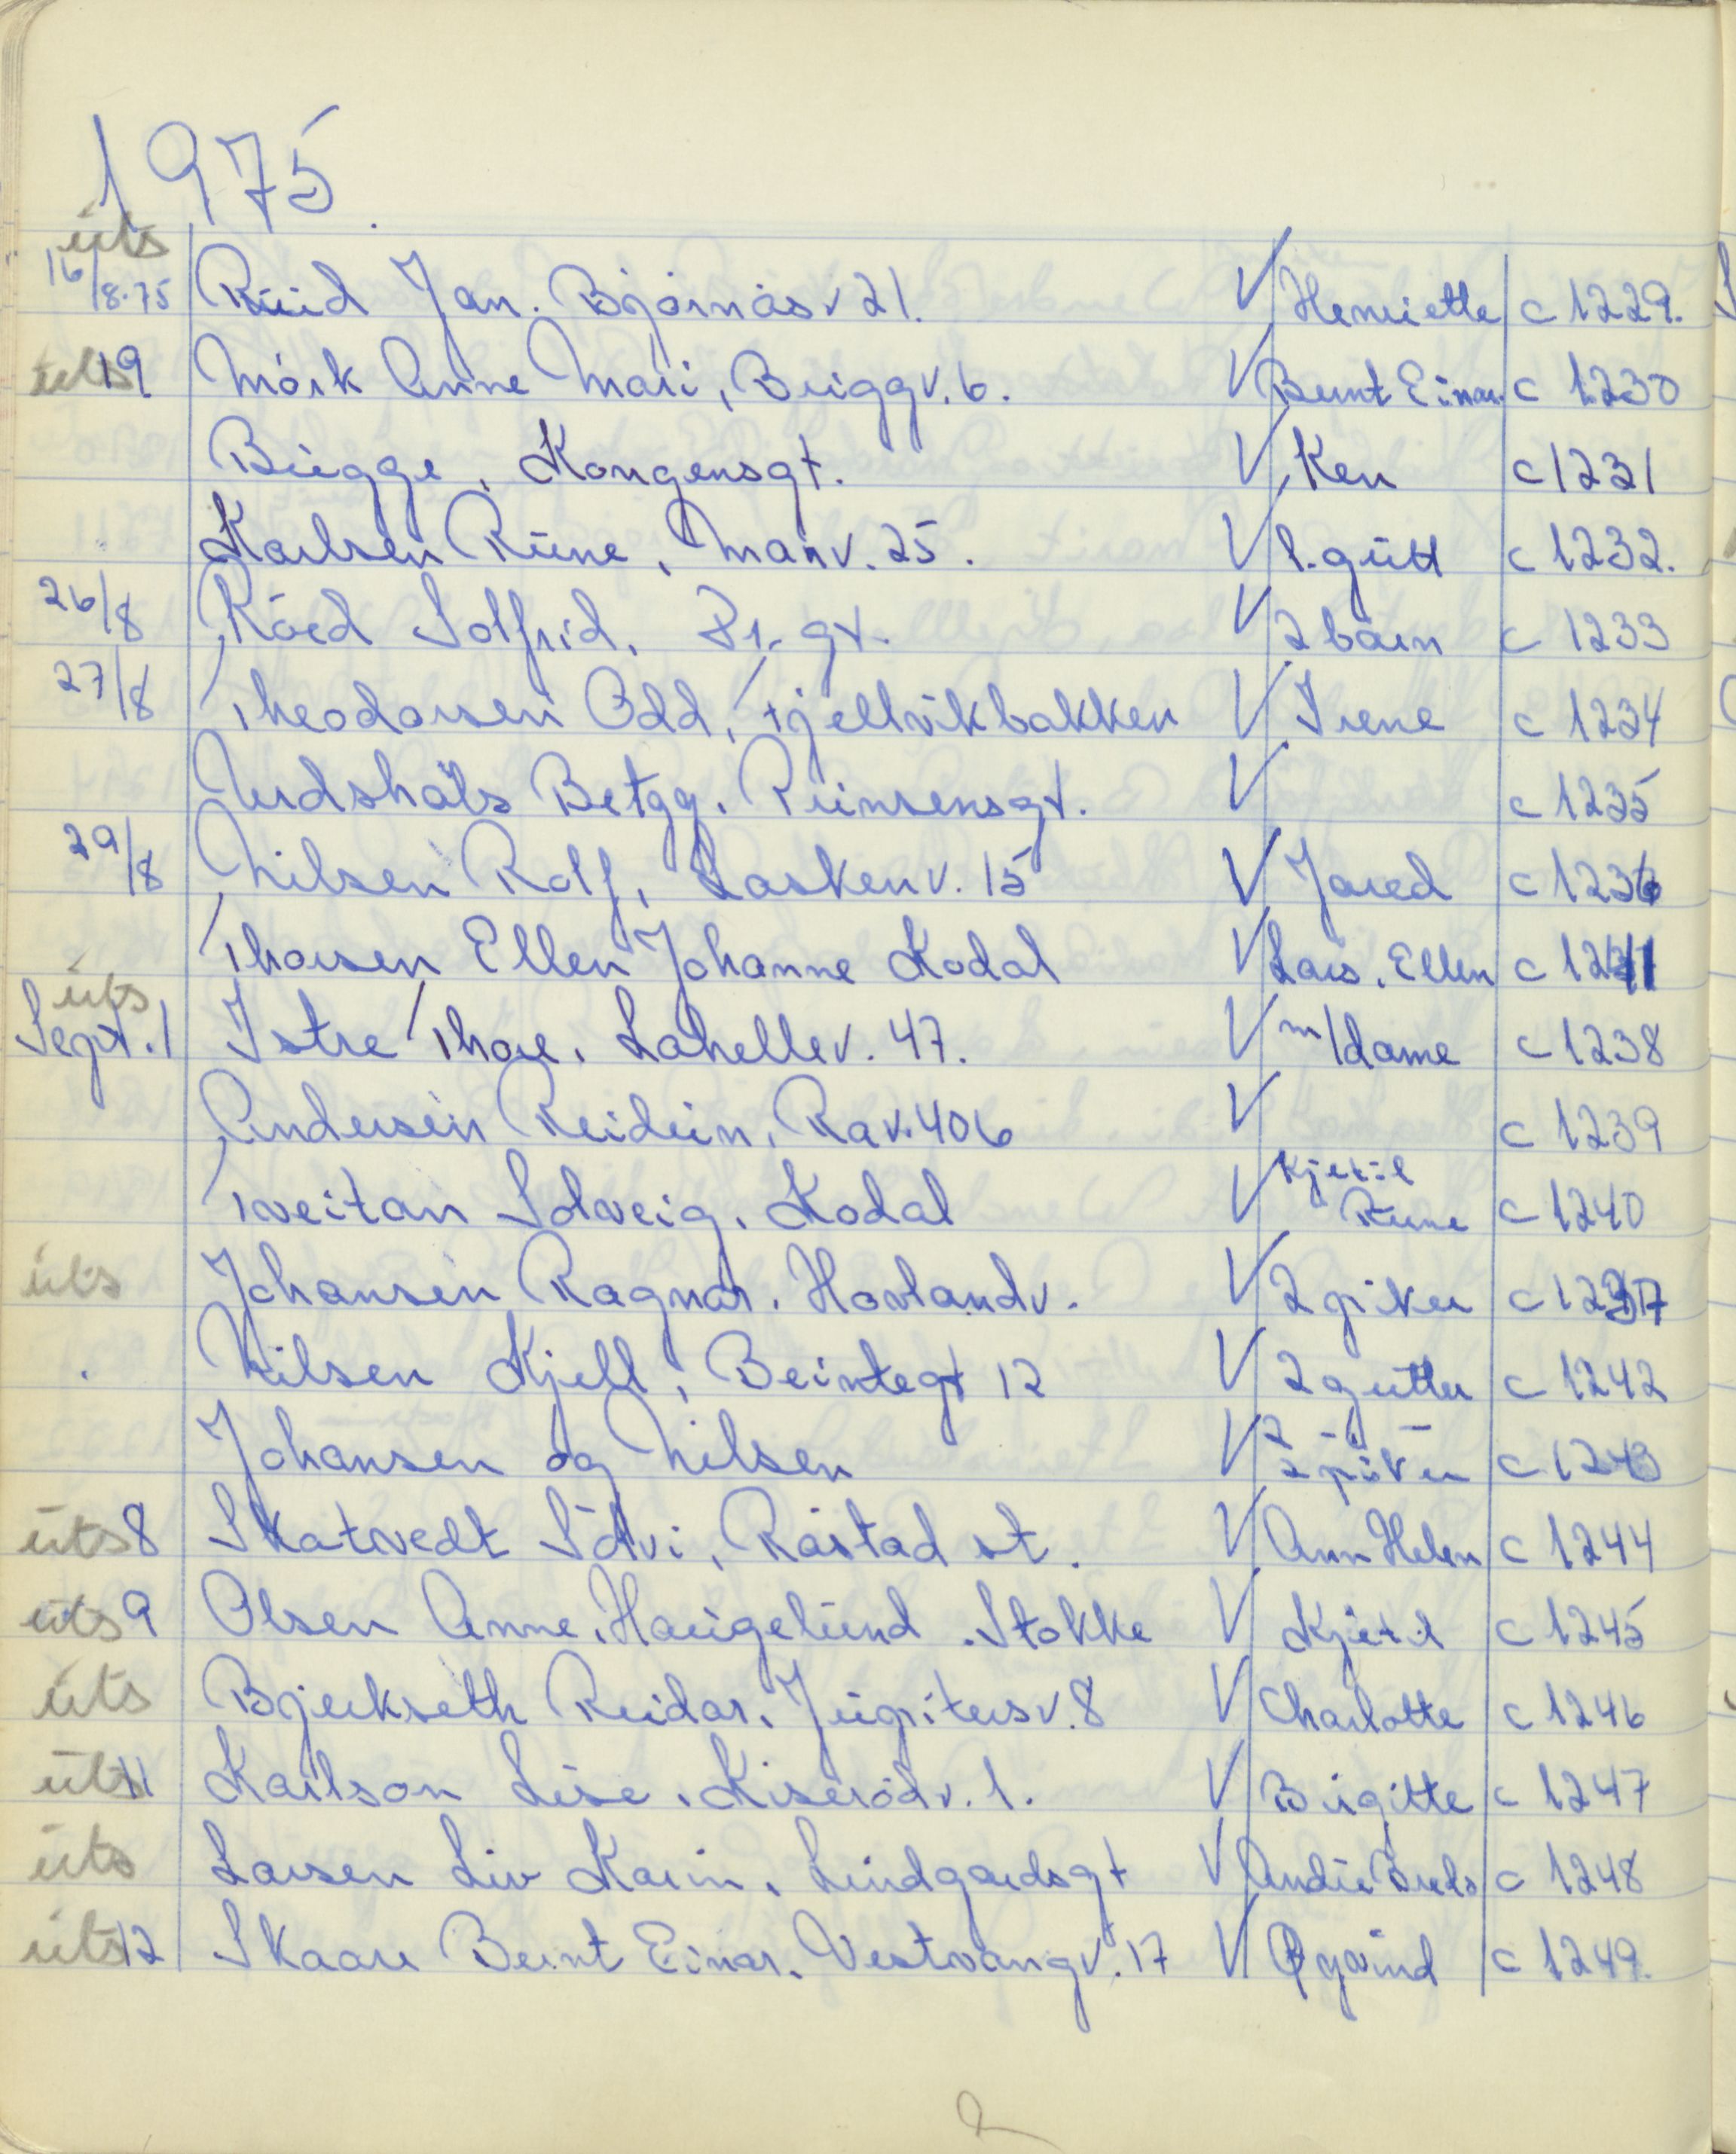 1975
üts
16/8.75 Rüüd Jan. Bjørnåsv 21. V Henriette c 1229.
üts 19 Mörk Anne Mari, Briggv. 6. V Bernt Einar. c 1230
Bügge, Kongensgt. V Ken c 1231
Karlsen Rüne, Marv. 25. V l. gütt c 1232.
26/8 Röed Solfrid, Pr. gt. V 2 barn c 1233
27/8 Theodorsen Odd, Fjellvikbakken V Irene c 1234
Betgg. Prinsensgt. V c 1235
29/8 Nilsen Rolf, Laskenv. 15 V Jared c 1236
Thorsen Ellen Johanne Kodal V Lars, Ellen c 1241
üts
Sept. 1 Istre Thore, Lahellev. 47. V m/dame c 1238
Andersen Reidein, Rav. 406 V c 1239
Tveitan Solveig, Kodal V Kjetil Rüne c 1240
üts Johansen Ragnar, Hovlandv. V 2 piker c 1237
Nilsen Kjell, Beintegt 12 V 2 gutter c 1242
Johansen og Nilsen V 2 - " - 2 piker c 1243
üts 8 Skatvedt Sölvi, Råstad st. V Ann Helen c 1244
üts 9 Olsen Anne, Haügelünd, Stokke V Kjetil c 1245
üts Bjerkseth Reidar, Jüpitersv. 8 V Charlotte c 1246
üts 11 Karlson Lise, Kiserödv. 1. V Birgitte c 1247
üts Larsen Liv Karin, Lindgardsgt V c 1248
üts 12 Skaare Bernt Einar, Vestvangv. 17 V Øyvind c 1249.
2